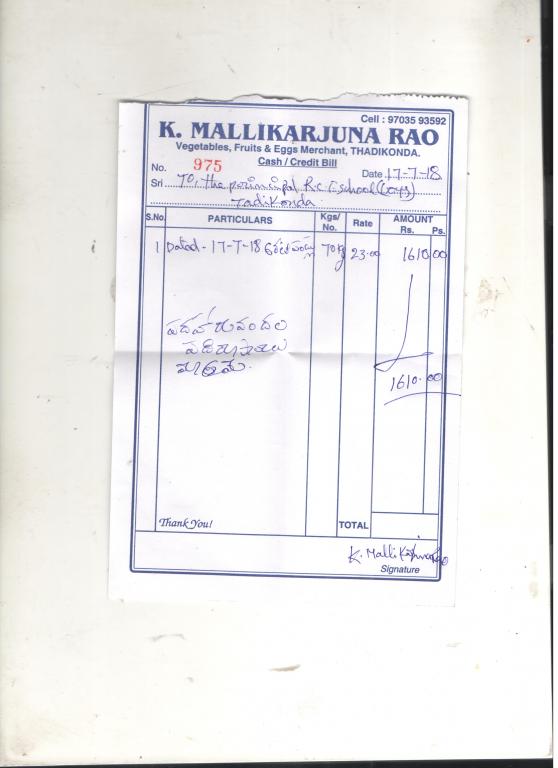 Cell : 97035 93592
K. MALLIKARJUNA RAO
Vegetables, Fruits & Eggs Merchant, THADIKONDA.
Cash / Credit Bill
No. 975 Date 17-7-18
Sri To, the R.C. school (boys)
Tadikonda.
S.No. PARTICULARS Kgs/ No. Rate AMOUNT Rs. Ps.
1 Dated - 17-7-18 70 kg 23.00 1610.00
పదహారువందల
పదిరూపాయలు
మాత్రమే.
1610.00
Thank You! TOTAL
K. Mallikarjuna Rao
Signature